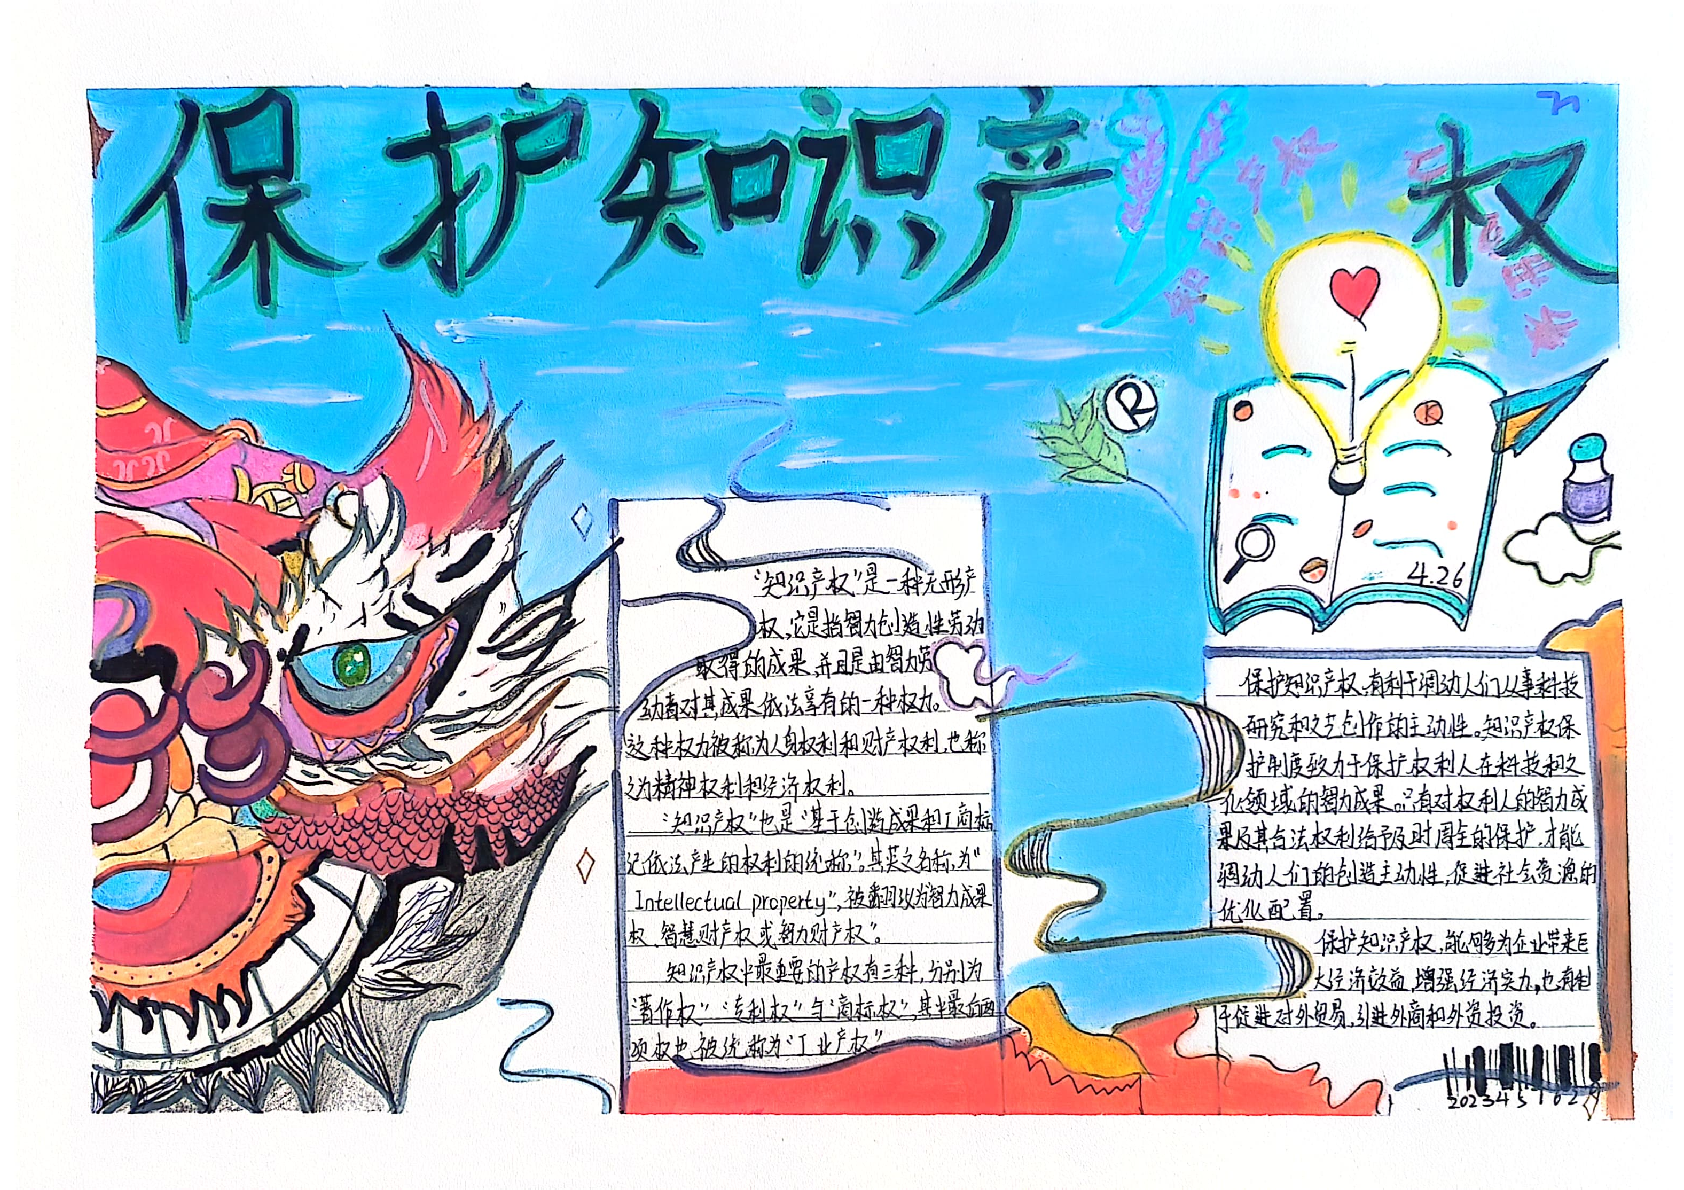 保护知识产权
R
4.26
"知识产权"是一种无形产
权，它是指智力创造性劳动
取得的成果，并且是由智力劳
动者对其成果依法享有的一种权力。
这种权力被称为人身权利和财产权利，也称
之为精神权利和经济权利。
"知识产权"也是"基于创造成果和工商标
记依法产生的权利的统称"。其英文名称为"
Intellectual property"，被翻译改为智力成果
权、智慧财产权或智力财产权"。
知识产权中最重要的产权有三种，分别为
"著作权""专利权"与"商标权"，其中最后两
项权也被统称为"工业产权"
保护知识产权，有利于调动人们从事科技
研究和文艺创作的主动性。知识产权保
护制度致力于保护权利人在科技和文
化领域的智力成果。只有对权利人的智力成
果及其合法权利给予及时周全的保护，才能
调动人们的创造主动性，促进社会资源的
优化配置。
保护知识产权，能够为企业带来巨
大经济效益，增强经济实力，也有利
于促进对外贸易，引进外商和外资投资。